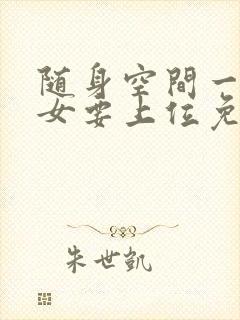 随身空間一
女要上位免
朱世凯